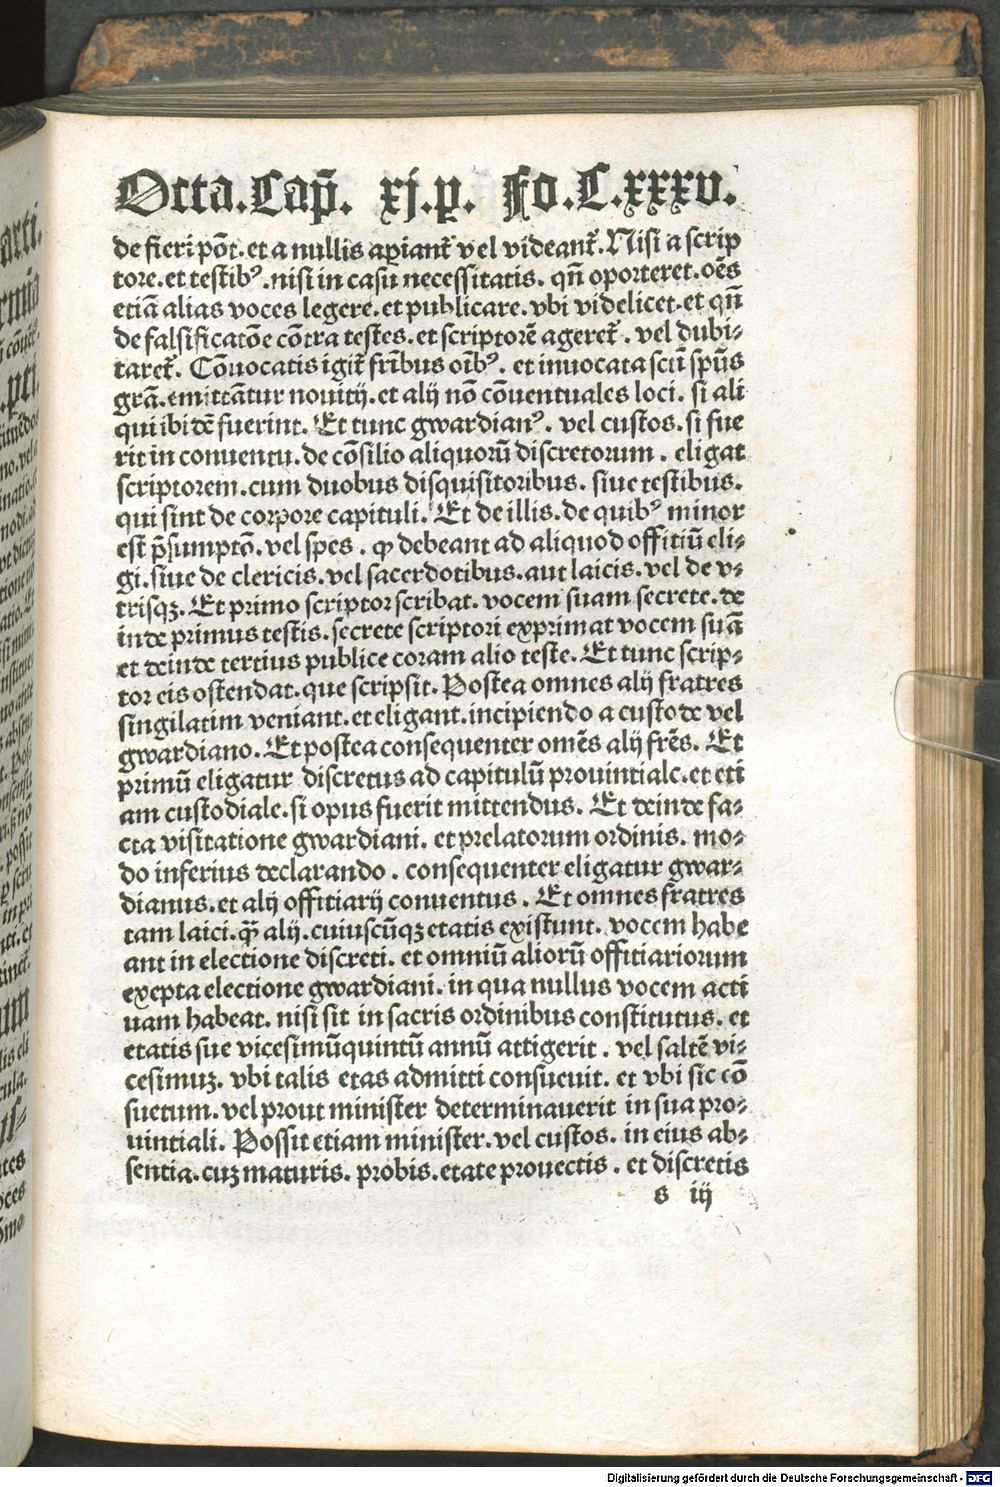 Octa. Cap̄. xj. p. Fo. C. xxxv.
de fieri pōt. et a nullis aꝑiant᷑ vel videant᷑. Nisi a scrip
tore. et testibꝰ. nisi in casu necessitatis. qn̄ oporteret. oēs
etiā alias voces legere. et publicare. vbi videlicet. et qn̄
de falsificatōe cōtra testes. et scriptorē ageret᷑. vel dubi⸗
taret᷑. Cōuocatis igit᷑ fr̄ibus oībꝰ. et inuocata sct̄i spūs
grā. emittātur nouitij. et alij nō cōuentuales loci. si ali
qui ibidē fuerint. Et tunc gwardianꝰ. vel custos. si fue
rit in conuentu. de cōsilio aliquorū discretorum. eligat
scriptorem. cum duobus disquisitoribus. siue testibus.
qui sint de corpore capituli. Et de illis. de quibꝰ minor
est p̄sumptō. vel spes. ꝙ debeant ad aliquod offitiū eli⸗
gi. siue de clericis. vel sacerdotibus. aut laicis. vel de v⸗
trisqꝫ. Et primo scriptor scribat. vocem suam secrete. de
inde primus testis. secrete scriptori exprimat vocem suā
et deinde tertius publice coram alio teste. Et tunc scrip⸗
tor eis ostendat. que scripsit. Postea omnes alij fratres
singilatim veniant. et eligant. incipiendo a custode vel
gwardiano. Et postea consequenter omēs alij frēs. Et
primū eligatur discretus ad capitulū prouintiale. et eti
am custodiale. si opus fuerit mittendus. Et deinde fa⸗
cta visitatione gwardiani. et prelatorum ordinis. mo⸗
do inferius declarando. consequenter eligatur gwar⸗
dianus. et alij offitiarij conuentus. Et omnes fratres
tam laici. qꝫ̄ alij. cuiuscūqꝫ etatis existunt. vocem habe
ant in electione discreti. et omniū aliorū offitiariorum
exepta electione gwardiani. in qua nullus vocem acti
uam habeat. nisi sit in sacris ordinibus constitutus. et
etatis sue vicesimūquintū annū attigerit. vel saltē vi⸗
cesimuꝫ. vbi talis etas admitti consueuit. et vbi sic cō
suetum. vel prout minister determinauerit in sua pro⸗
uintiali. Possit etiam minister. vel custos. in eius ab⸗
sentia. cuꝫ maturis. probis. etate prouectis. et discretis
s iij
Digitalisierung gefördert durch die Deutsche Forschungsgemeinschaft - DFG